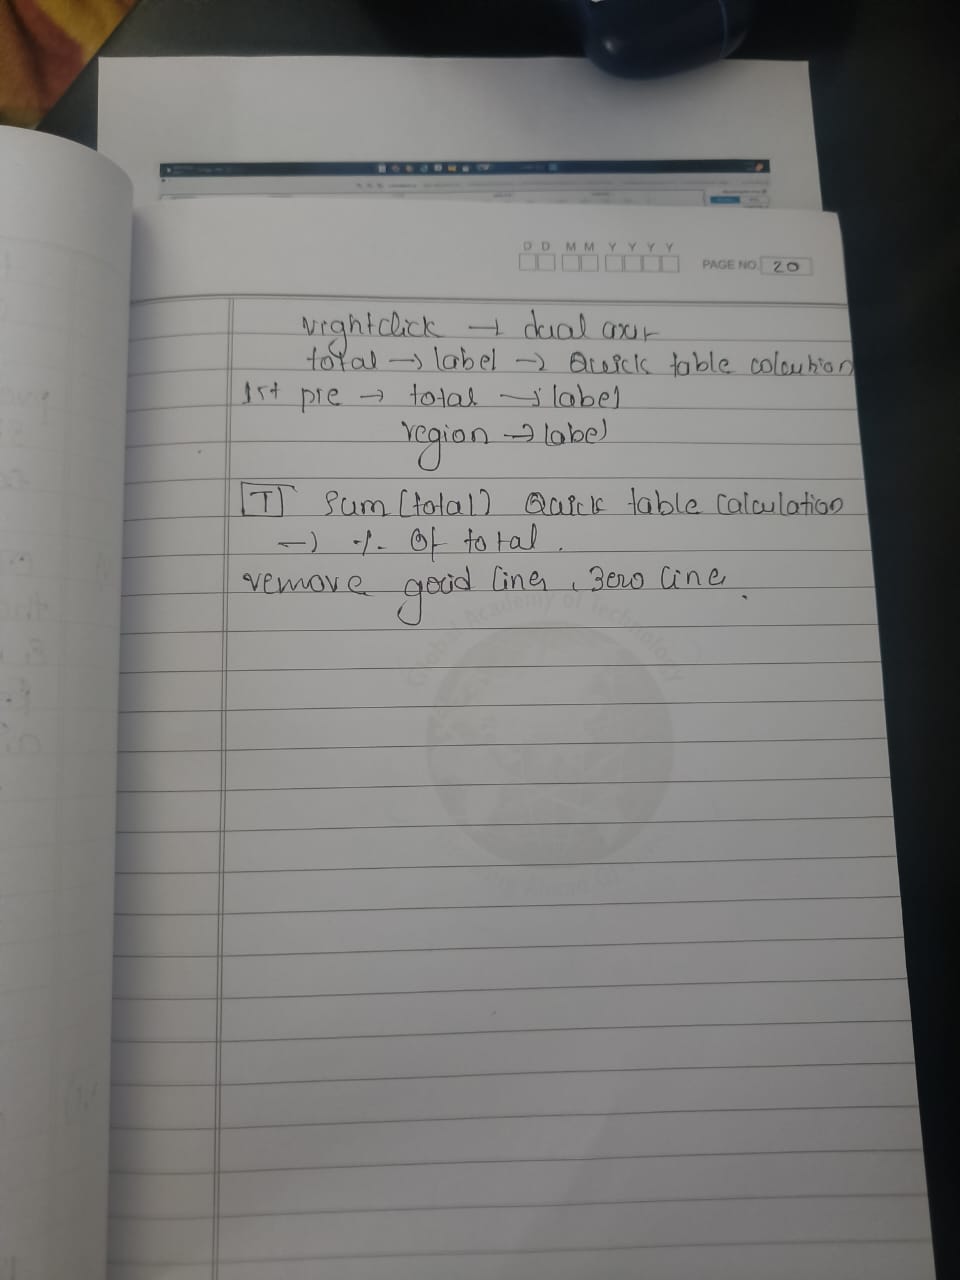 D D M M Y Y Y Y
PAGE NO. 20
rightclick → dual axis
total → label → Quick table colcution
1st pre → total → label
region → label
[T] sum(total) Quick table calculation
→ % Of total.
remove goid lines, zero line.
Global Academy of Technology